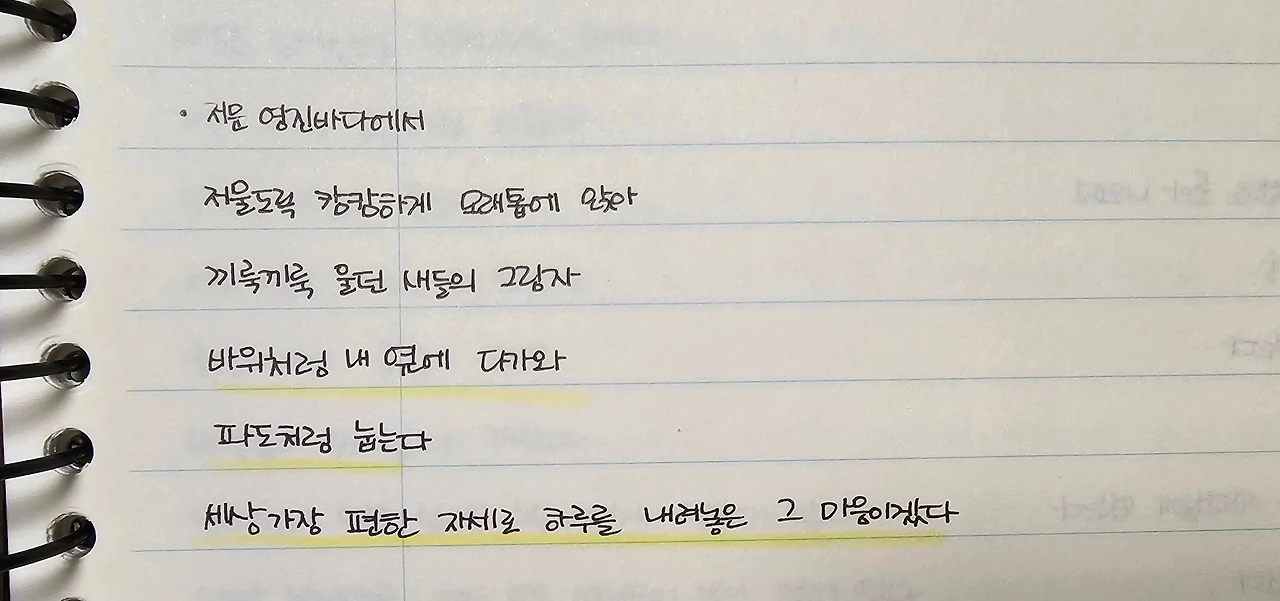 • 저문 영진바다에서
저물도록 캉캄하게 모래톱에 앉아
끼룩끼룩 울던 새들의 그림자
바위처럼 내 옆에 다가와
파도처럼 눕는다
세상가장 편한 자세로 하루를 내려놓은 그 마음이겠다